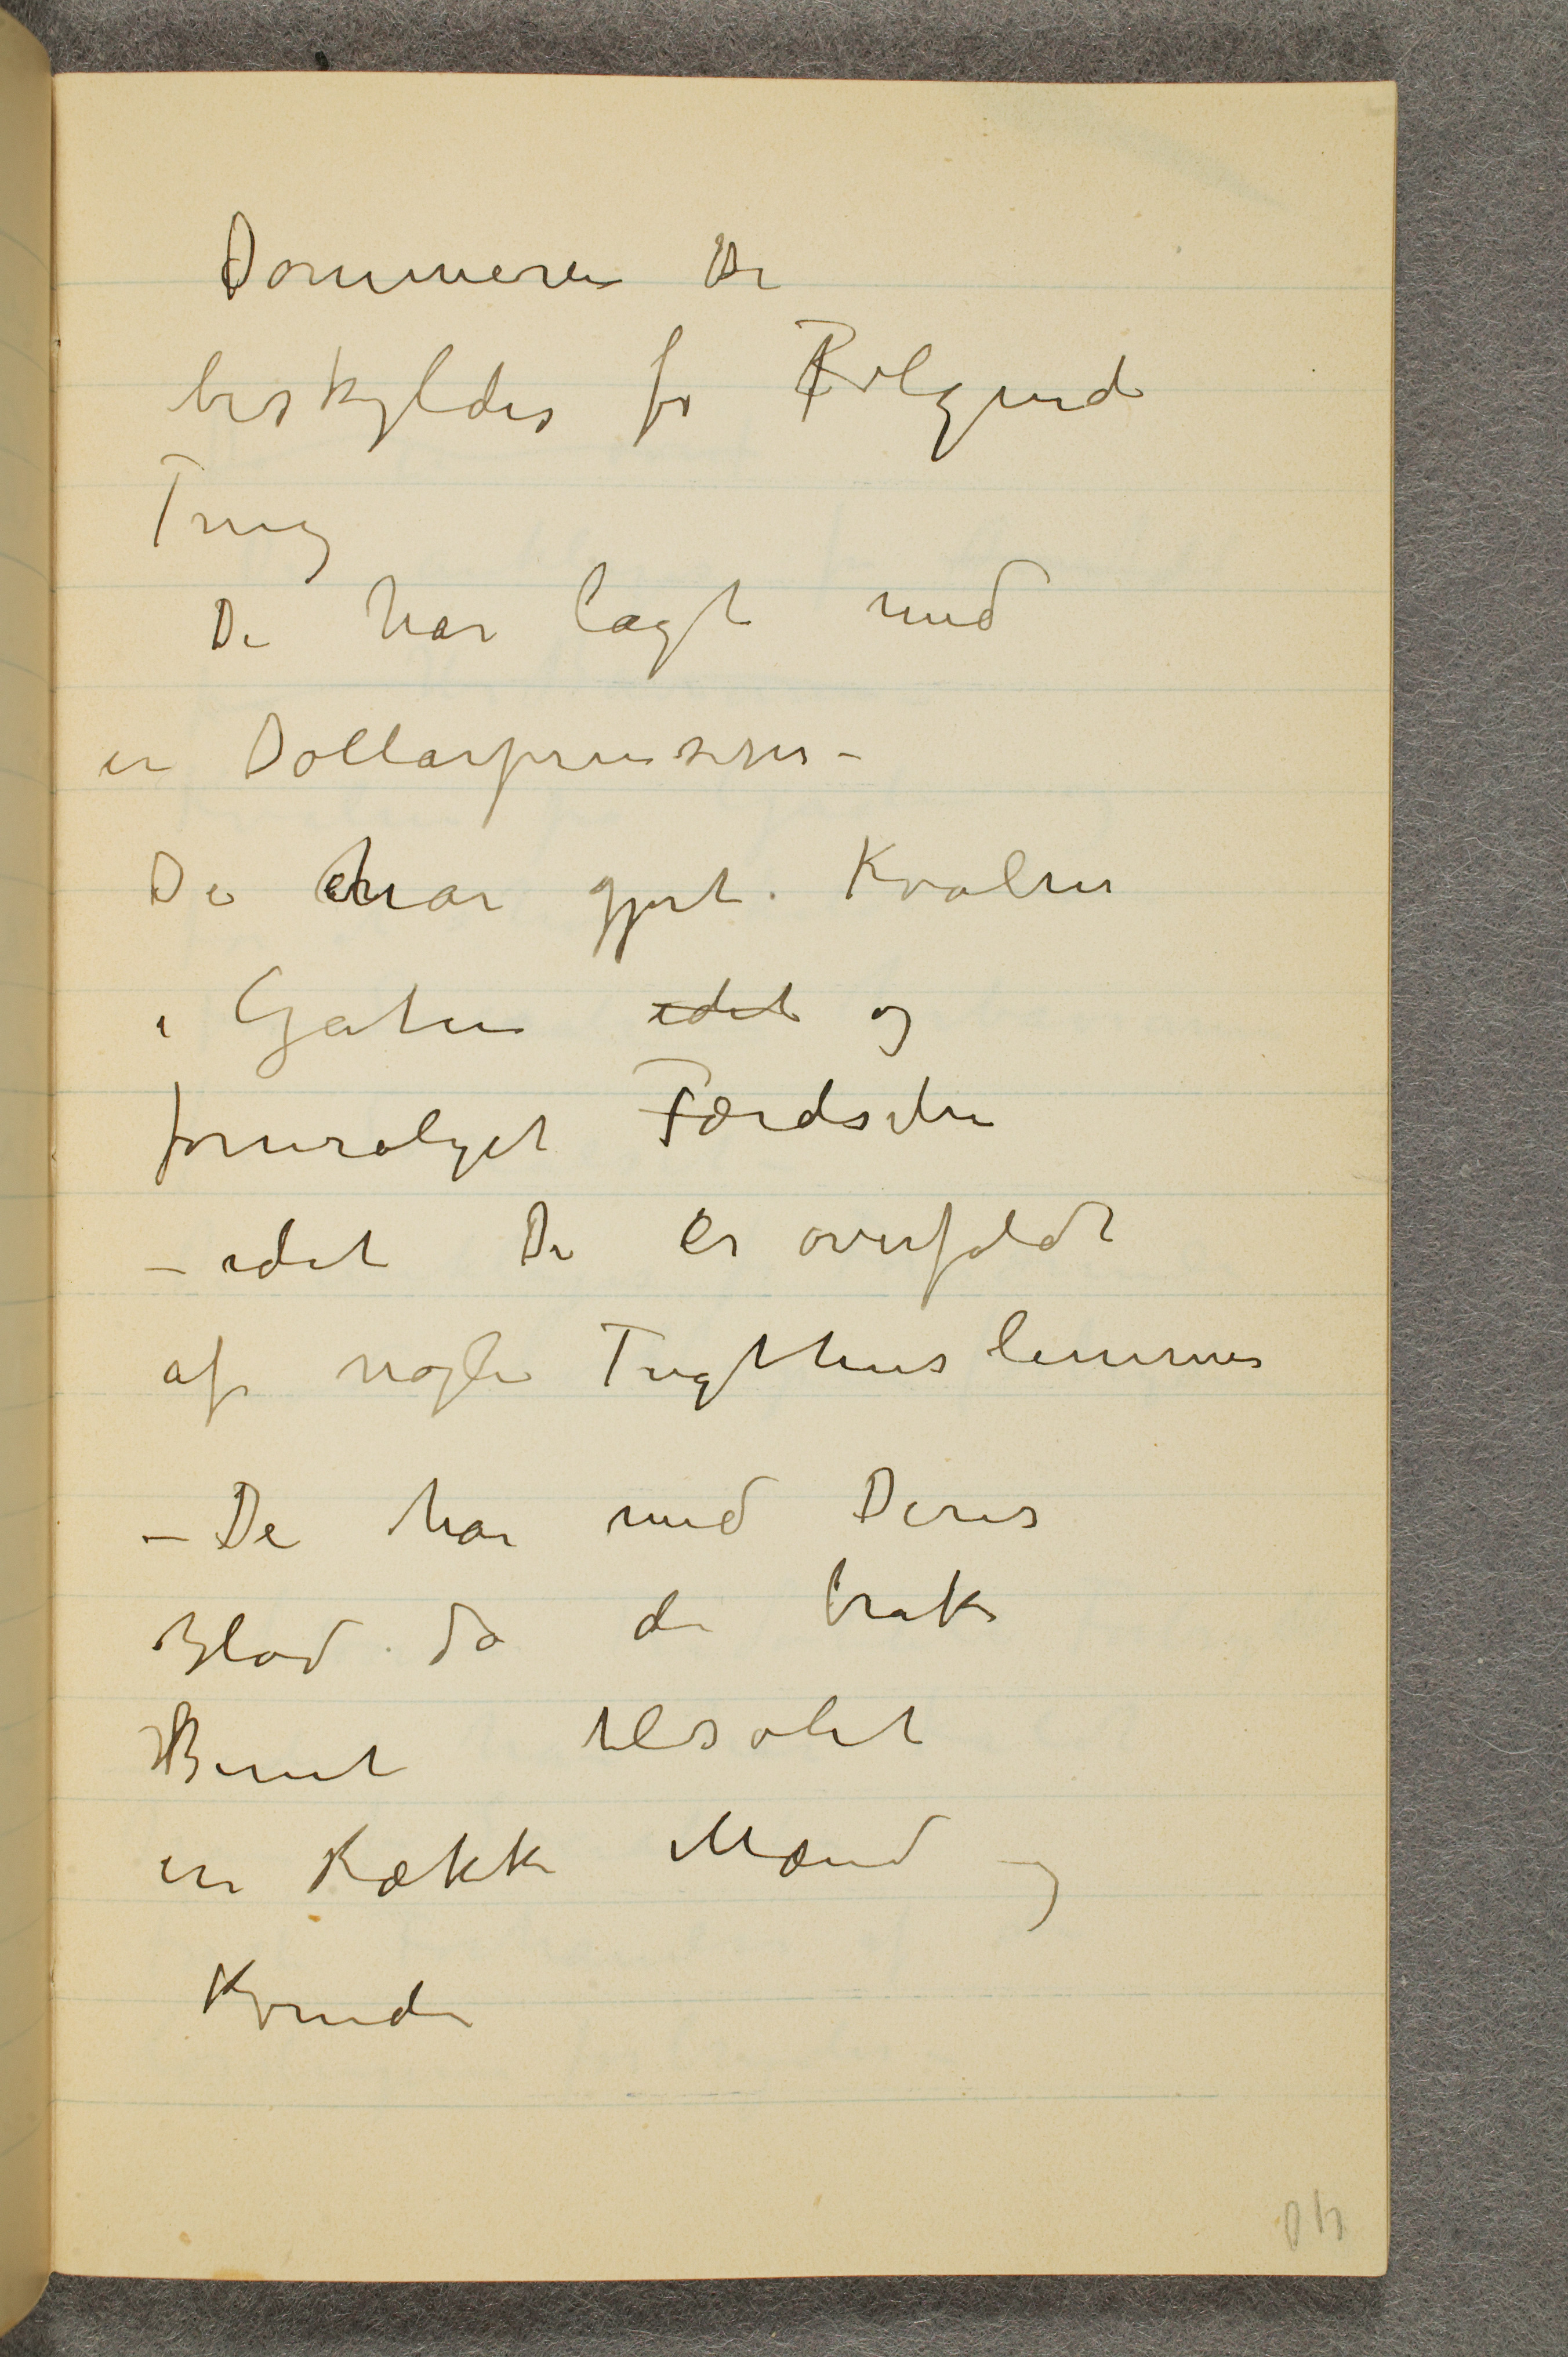 Dommeren De
beskyldes for Følgende
Ting
De har lagt med
en Dollarprinsesse –
De har gjort Kvalm
i Gaten idet og
foruroliget Færdselen
– idet De er overfaldt
af nogle Tugthuslemmer
– De har med Deres
Blod da de brak
Benet tilsølet
en Række Mænd og
Kvinder
40